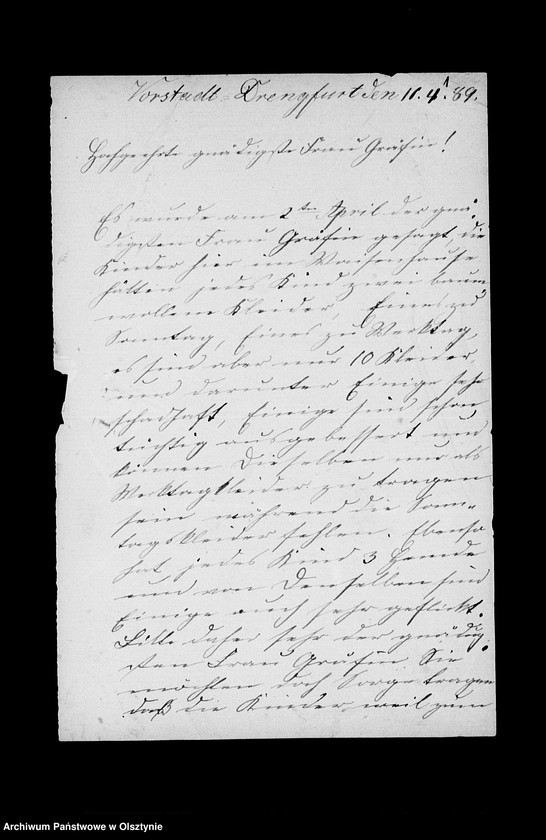 Vorstadt-Drengfurt den 11. 4. 89.
Hochgeehrte gnädigste Frau Gräfin!
Es wurde am 2ten April der gnä-
digsten Frau Gräfin gesagt, die
Kinder hier im Waisenhause
hätten jedes Kind zwei baum-
wollene Kleider, Eines zu
Sonntag, Eines zu Werktag,
es sind aber nur 10 Kleider
und darunter Einige sehr
schadhaft, Einige sind schon
tüchtig ausgebessert und
können dieselben nur als
Werktagskleider zu tragen
sein während die Sonn-
tagskleider fehlen. Ebenso
hat jedes Kind 3 Hemde
und von denselben sind
Einige auch sehr geflickt.
Bitte daher sehr der gnädig-
sten Frau Gräfin, Sie
möchten doch Sorge tragen
daß die Kinder, weil zum
Archiwum Państwowe w Olsztynie